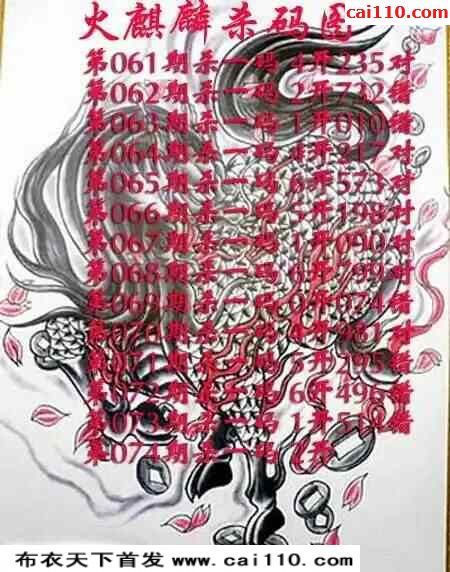 cai110.com
火麒麟杀码图
第061期杀一码 4开235对
第062期杀一码 2开732错
第063期杀一码 1开010错
第064期杀一码 4开217对
第065期杀一码 6开573对
第066期杀一码 5开198对
第067期杀一码 1开090对
第068期杀一码 开799对
第069期杀一码 开074错
第070期杀一码 开981对
第071期杀一码 5开295错
第072期杀一码 6开496错
第073期杀一码 1开51 错
第074期杀一码 开
布衣天下首发 www.cai110.com